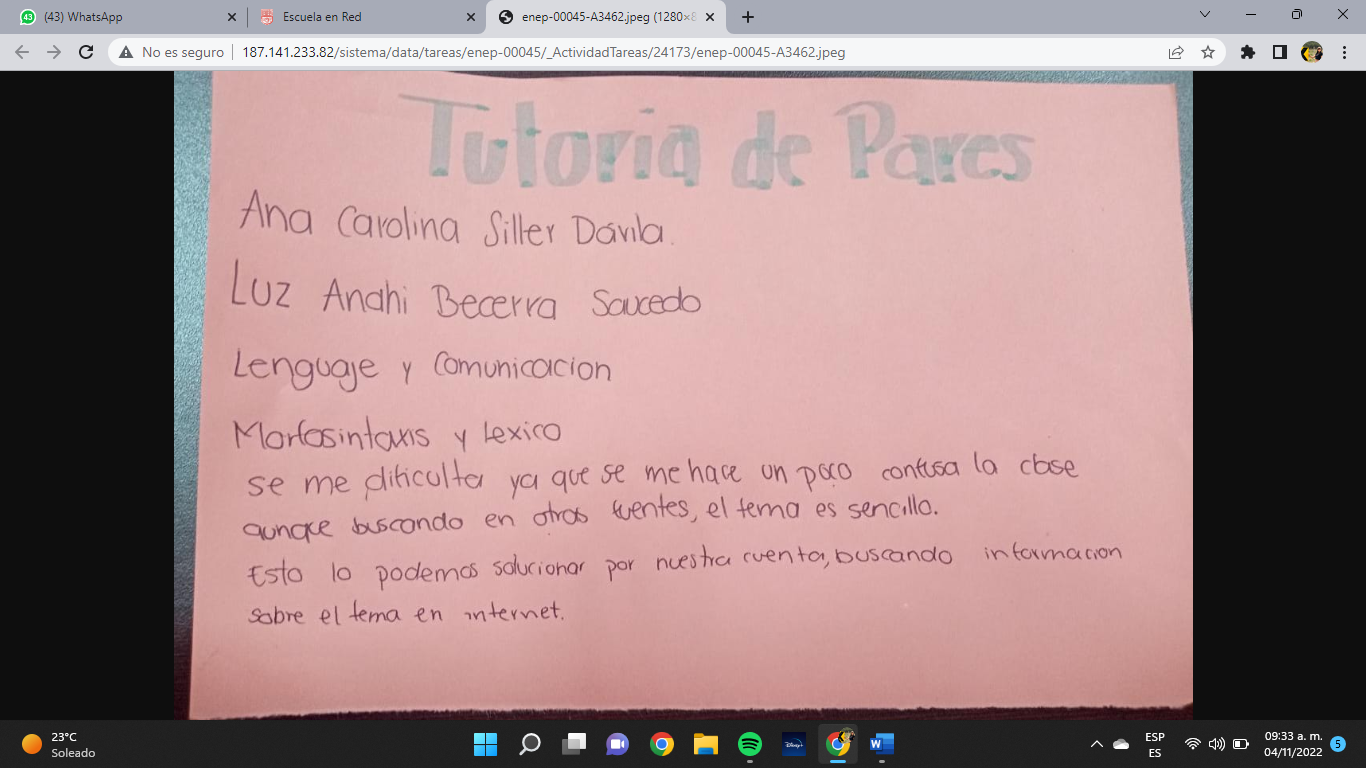 (43) WhatsApp
Escuela en Red
enep-00045-A3462.jpeg (1280×8
No es seguro
187.141.233.82/sistema/data/tareas/enep-00045/_ActividadTareas/24173/enep-00045-A3462.jpeg
Tutoria de Pares
Ana Carolina Siller Dávila.
Luz Anahi Becerra Saucedo
Lenguaje y Comunicacion
Morfosintaxis y Lexico
se me dificulta ya que se me hace un poco confusa la clase
aunque buscando en otras fuentes, el tema es sencillo.
Esto lo podemos solucionar por nuestra cuenta, buscando informacion
sobre el tema en internet.
23°C
Soleado
Disney+
ESP
ES
09:33 a. m.
04/11/2022
5